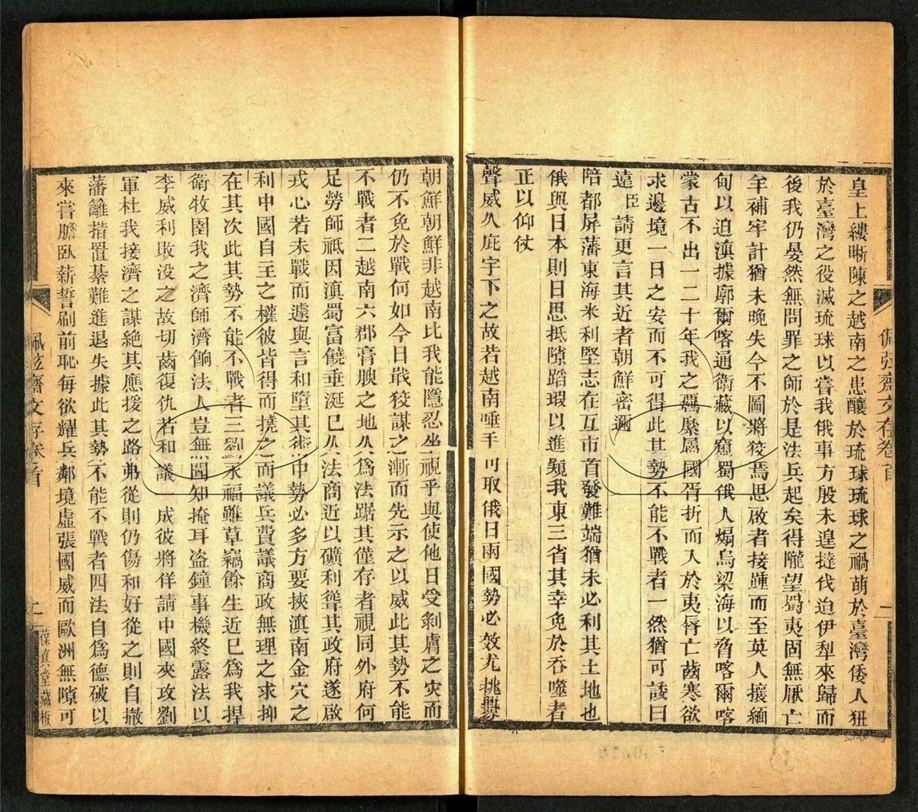 皇上縷晰陳之越南之患釀於琉球琉球之禍萌於臺灣倭人狃
於臺灣之役滅琉球以嘗我俄事方殷未遑撻伐迫伊犁來歸而
後我仍晏然無問罪之師於是法兵起矣得隴望蜀夷固無厭亡
羊補牢計猶未晚失今不圖將狡焉思啟者接踵而至英人擾緬
甸以迫滇據廓爾喀通衛藏以窺蜀俄人煽烏梁海以脅喀爾喀
蒙古不出一二十年我之藩屬國胥折而入於夷脣亡齒寒欲
求邊境一日之安而不可得此其勢不能不戰者一然猶可諉曰
遠臣請更言其近者朝鮮密邇
陪都屏藩東海米利堅志在互市首發難端猶未必利其土地也
俄與日本則日思抵隙蹈瑕以進窺我東三省其幸免於吞噬者
正以仰仗
聲威久庇宇下之故若越南唾手可取俄日兩國勢必效尤挑釁
朝鮮朝鮮非越南比我能隱忍坐視乎與使他日受剝膚之灾而
仍不免於戰何如今日戢狡謀之漸而先示之以威此其勢不能
不戰者二越南六郡膏腴之地久為法踞其僅存者視同外府何
足勞師祗因滇蜀富饒垂涎已久法商近以礦利聳其政府遂啟
戎心若未戰而遽與言和墮其術中勢必多方要挾滇南金穴之
利中國自主之權彼皆得而撓之而議兵費議商政無理之求抑
在其次此其勢不能不戰者三劉永福雖草竊餘生近已為我捍
衛牧圉我之濟師濟餉法人豈無聞知掩耳盜鐘事機終露法以
李威利敗没之故切齒復仇若和議一成彼將佯請中國夾攻劉
軍杜我接濟之謀絕其應援之路弗從則仍傷和好從之則自撤
藩籬措置綦難進退失據此其勢不能不戰者四法自為德破以
來嘗膽臥薪誓刷前恥每欲耀兵鄰境虛張國威而歐洲無隙可
佩弦齋文存卷首
一
佩弦齋文存卷首
二
葆真堂藏板